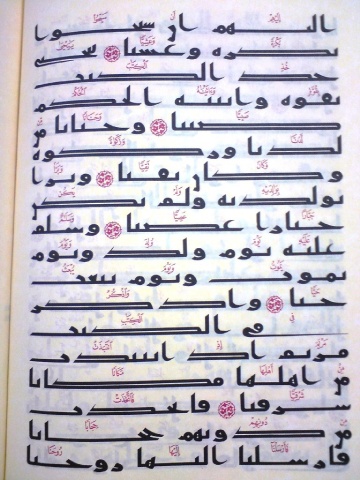 اليهم ان سبحوا
بكره وعشيا ۝ ييحيى
خذ الكتب
بقوه واتينه الحكم
صبيا ۝ وحنانا من
لدنا وزكوه
وكان تقيا ۝ وبرا
بولديه ولم يكن
جبارا عصيا ۝ وسلم
عليه يوم ولد ويوم
يموت ويوم يبعث
حيا ۝ واذكر
في الكتب
مريم اذ انتبذت
من اهلها مكانا
شرقيا ۝ فاتخذت
من دونهم حجابا
فارسلنا اليها روحنا